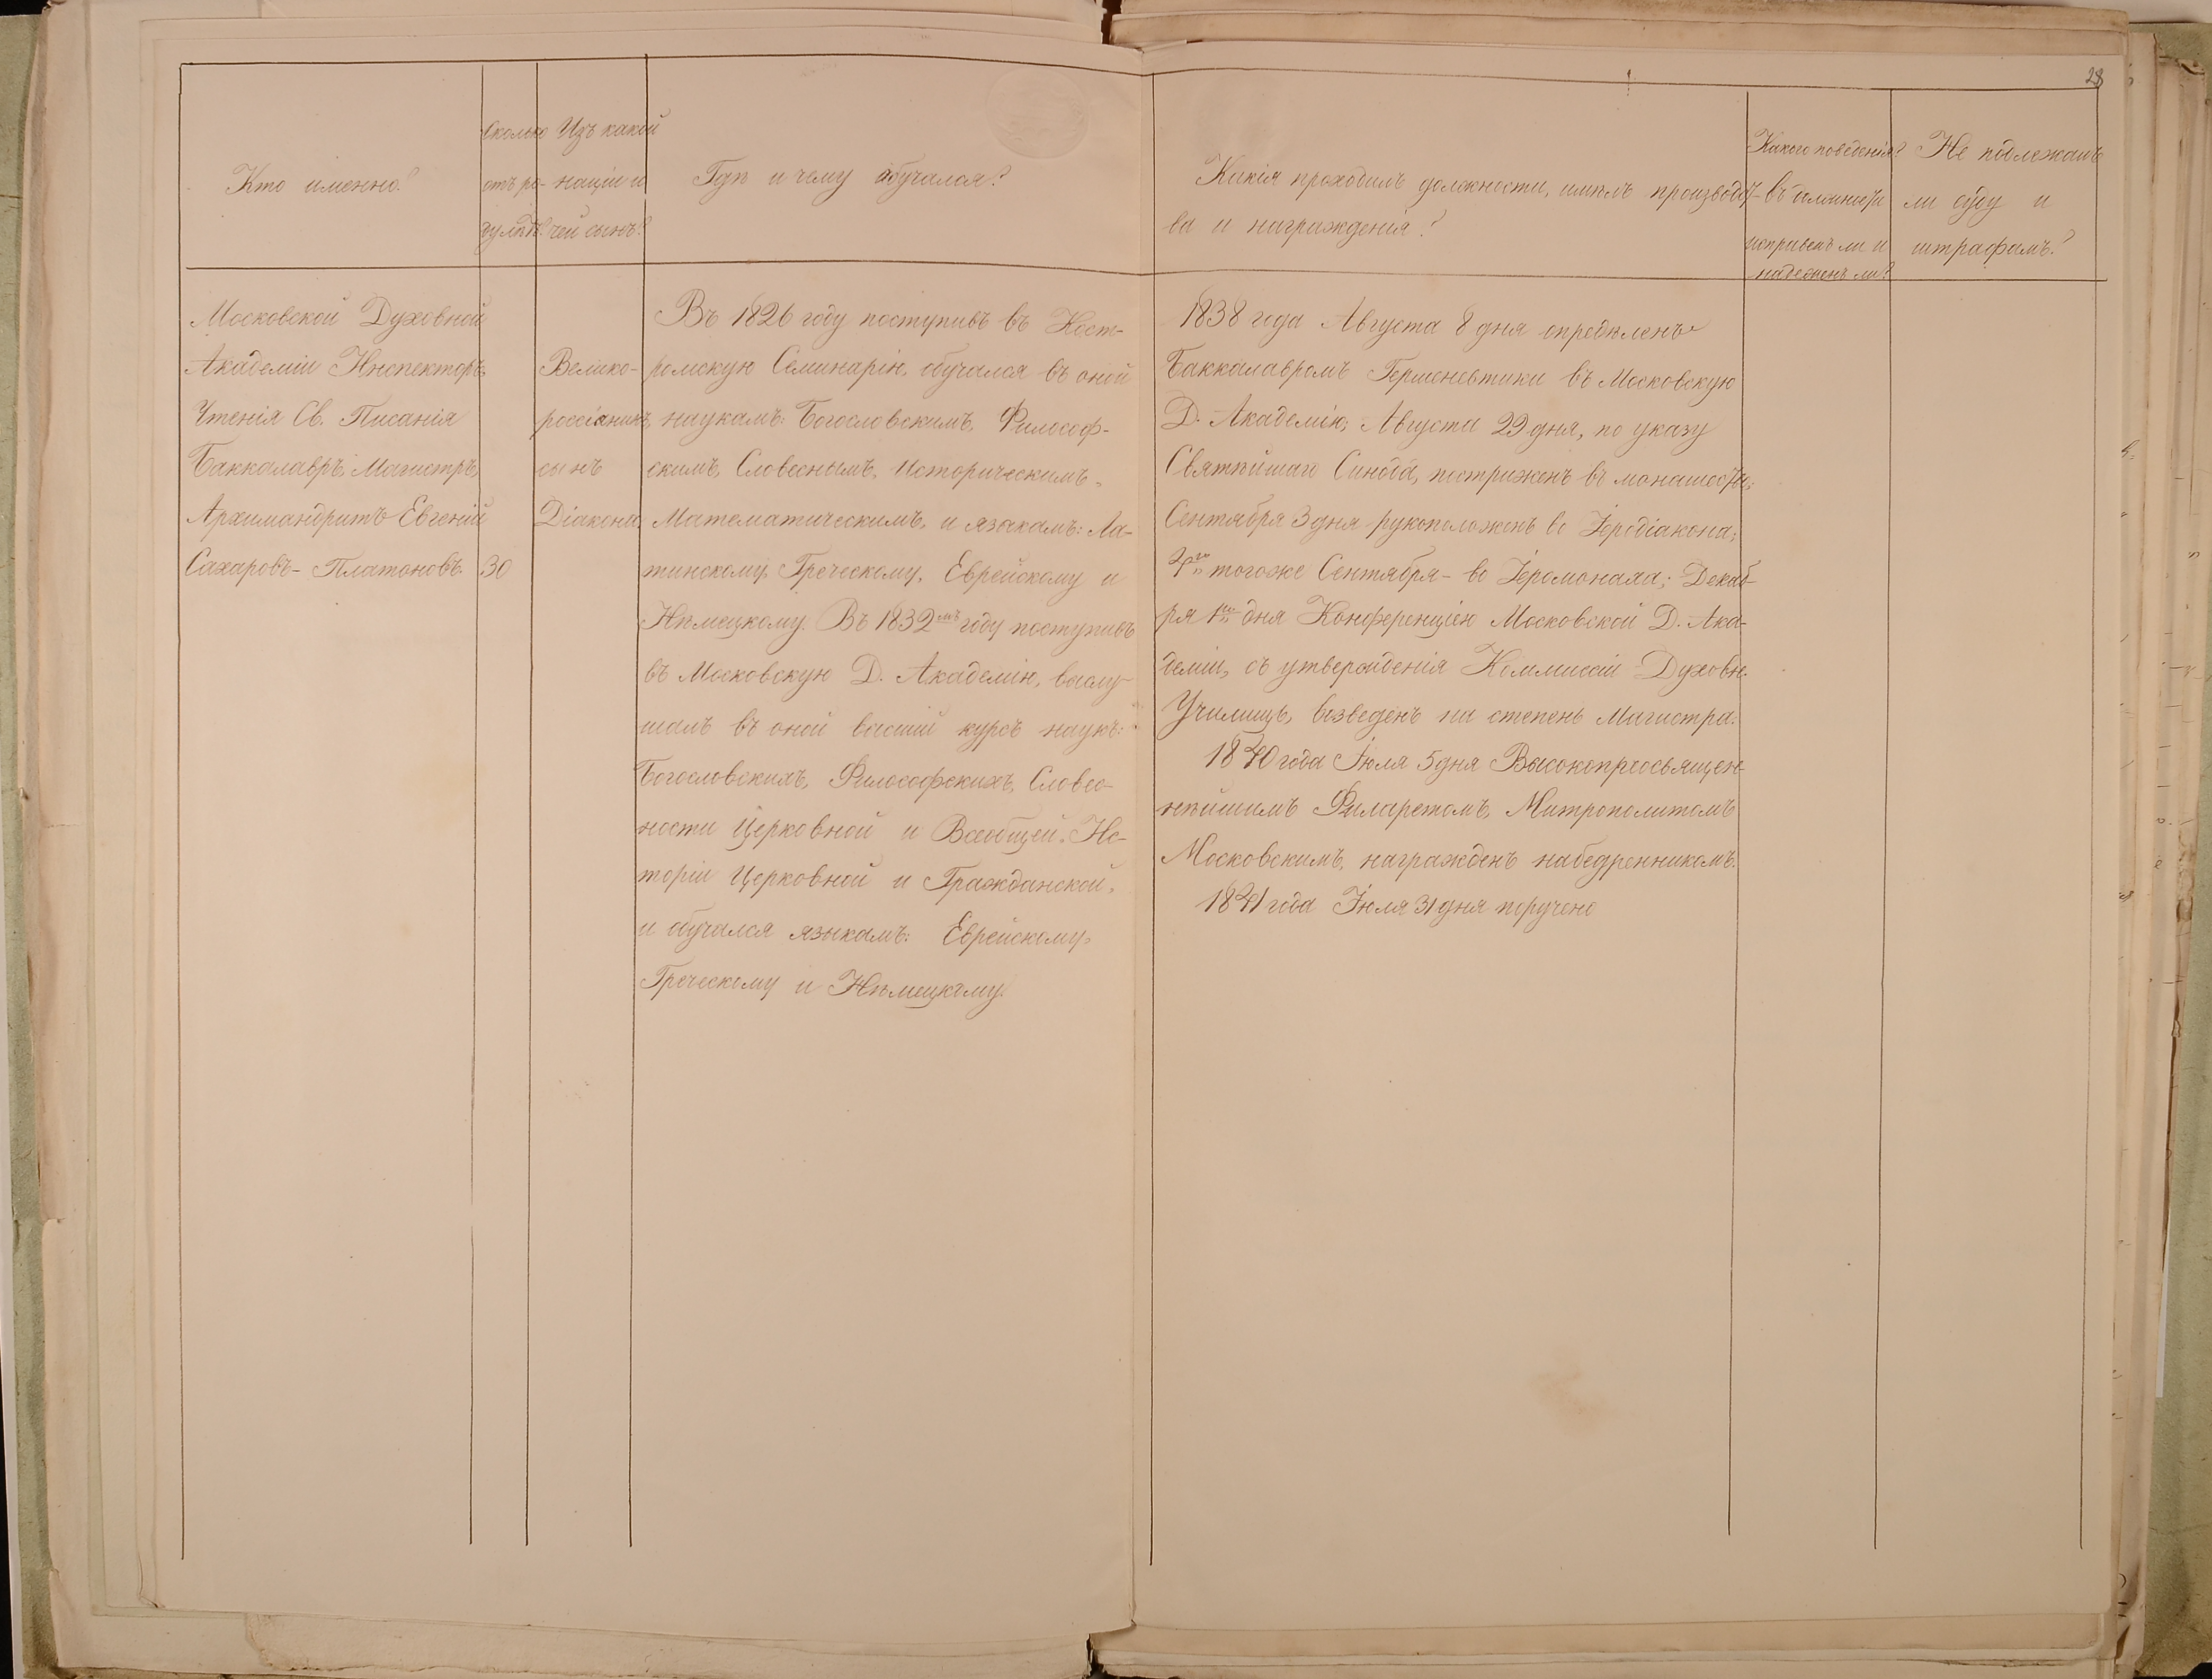 28
Кто именно?
Сколько
отъ ро-
ду лѣтъ?
Изъ какой
націи и
чей сынъ?
Гдѣ и чему обучался?
Какія проходилъ должности, имѣлъ производст-
ва и награжденія?
Какого поведенія?
въ должности
исправенъ ли и
надеженъ ли?
Не подлежалъ
ли суду и
штрафамъ?
Московской Духовной
Академіи Инспекторъ,
Чтенія Св. Писанія
Баккалавръ, Магистръ,
Архимандритъ Евгеній
Сахаровъ-Платоновъ.
30
Велико-
россіянинъ,
сынъ
Діакона
Въ 1826 году поступивъ въ Кост-
ромскую Семинарію, обучался въ оной
наукамъ: Богословскимъ, Философ-
скимъ, Словеснымъ, Историческимъ,
Математическимъ, и языкамъ: Ла-
тинскому, Греческому, Еврейскому и
Нѣмецкому. Въ 1832мъ году поступивъ
въ Московскую Д. Академію, выслу-
шалъ въ оной высшій курсъ наукъ:
Богословскихъ, Философскихъ, Словес-
ности Церковной и Всеобщей, Ис-
торіи Церковной и Гражданской,
и обучался языкамъ: Еврейскому,
Греческому и Нѣмецкому.
1838 года Августа 8 дня опредѣленъ
Баккалавромъ Герменевтики въ Московскую
Д. Академію; Августа 29 дня, по указу
Святѣйшаго Синода, постриженъ въ монашество;
Сентября 3 дня рукоположенъ во Іеродіакона;
4го тогоже Сентября - во Іеромонаха; Декаб-
ря 1го дня Конференціею Московской Д. Ака-
деміи, съ утвержденія Коммиссіи Духовн.
Училищъ, возведенъ на степень Магистра.
1840 года Іюля 5 дня Высокопреосвящен-
нѣйшимъ Филаретомъ, Митрополитомъ
Московскимъ, награжденъ набедренникомъ.
1841 года Іюля 31 дня поручено